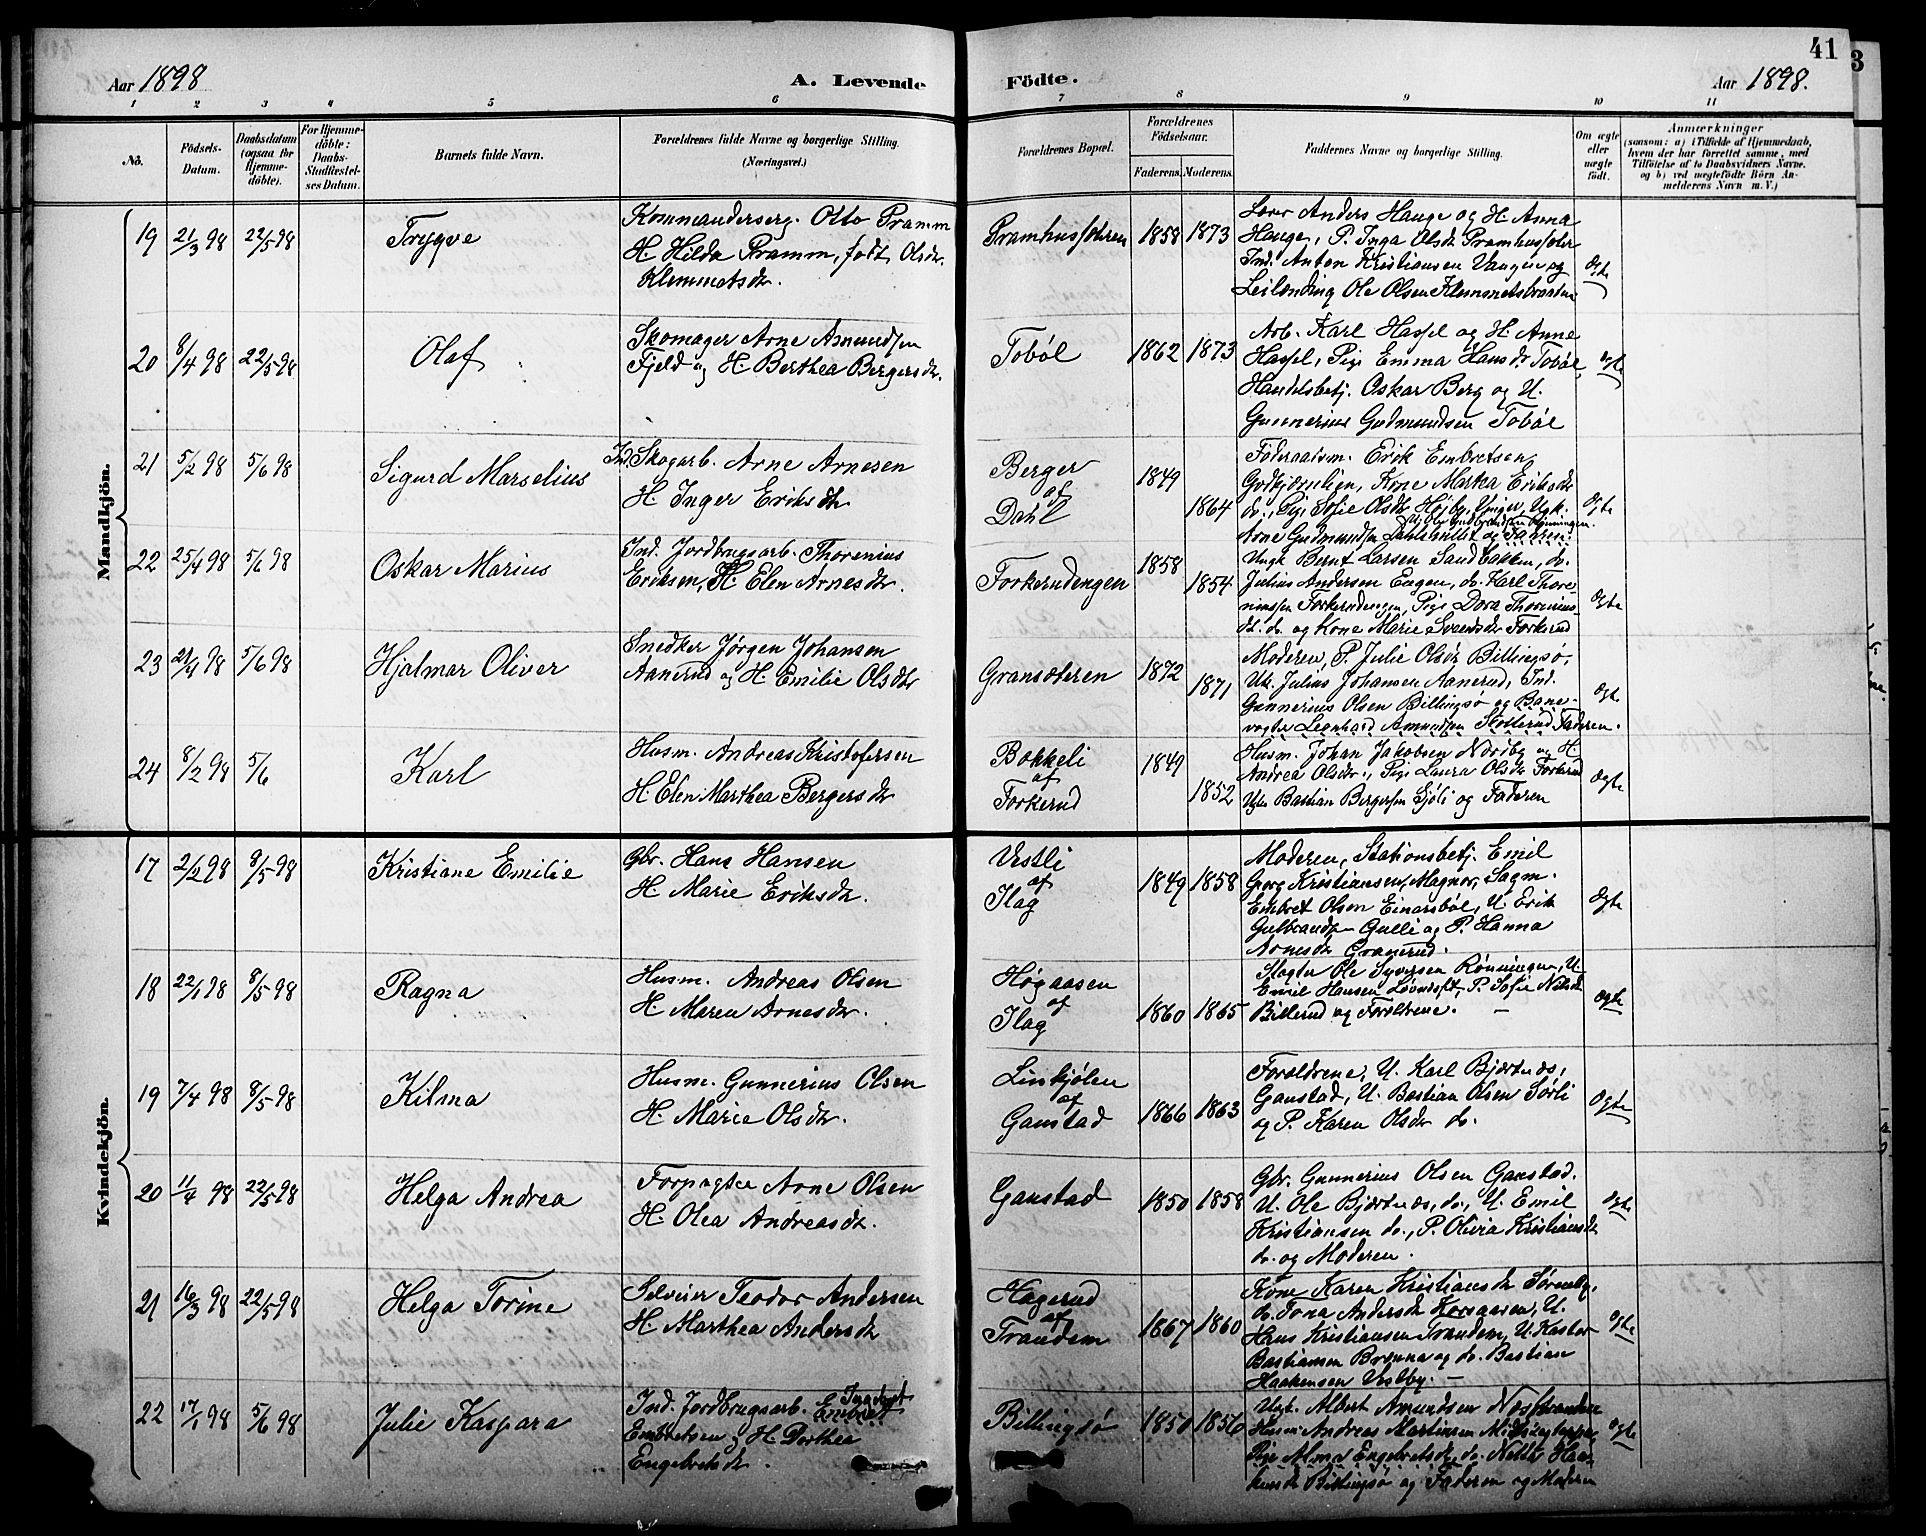 41
3
Aar 1898
A. Levende
Födte.
Aar 1898.
1 2 3 4 5 6 7 8 9 10 11
No.
Födsels-
Datum.
Daabsdatum
(ogsaa for
Hjemme-
döbte).
For Hjemme-
döbte:
Daabs-
Stadfæstel-
ses Datum.
Barnets fulde Navn.
Forældrenes fulde Navne og borgerlige Stilling.
(Næringsvei.)
Forældrenes Bopæl.
Forældrenes
Födselsaar.
Faderens. Moderens.
Faddernes Navne og borgerlige Stilling.
Om ægte
eller
uægte
født.
Anmærkninger
(saasom: a) i Tilfælde af Hjemmedaab,
hvem der har forrettet samme, med
Tilföielse af to Daabsvidners Navne,
og b) ved uægtefödte Börn An-
melderens Navn m. V.)
Mandkjön.
19 21/3 98 22/5 98 Trygve
Kommanderserg. Otto Pramm
H. Hilda Pramm, født Olsdr.
Klemmetsdr.
Pramhussæteren 1858 1873
Lærer Anders Hauge og H. Anna
Hauge, P. Inga Olsdr Pramhussæter
Ind. Anton Kristiansen Vangen og
Leilænding Ole Olsen Klemmetsbraaten
Ægte
20 8/4 98 22/5 98 Olaf
Skomager Arne Asmundsen
Fjeld og H. Berthea Bergersdr.
Tobøl 1862 1873
Arb. Karl Hassel og H. Anne
Hassel, Pige Emma Hansdr Tobøl,
Handelsbetj. Oskar Berg og U.
Gunnerius Gudmundsen Tobøl
ægte
21 5/2 98 5/6 98 Sigurd Marselius
Ind. Skogarb. Arne Arnesen
H. Inger Eriksdr
Berger
af
Dahl
1849 1864
Føderaadsm. Erik Embretsen
Godkjærnlien, Kone Martea Eriksdr
do., Pige Sofie Olsdr Højby, Unger, Ugk.
Arne Gudmundsen Dahlshullet og Faderen.
Ægte
22 25/4 98 5/6 98 Oskar Marius
Ind. Jordbrugsarb. Thorenius
Eriksen, H. Elen Arnesdr.
Forkerudengen 1858 1854
Ungk. Bernt Larsen Sandbakken, do.
Julius Andersen Engen, do. Karl Thore-
niussen Forkerudengen, Pige Dora Thorenius-
dr. do. og Kone Marie Svendsdr Forkerud
Ægte
23 21/4 98 5/6 98 Hjalmar Oliver
Snedker Jørgen Johansen
Aanerud og H. Emilie Olsdtr
Gransæteren 1872 1871
Moderen, P. Julie Olsdr Billingsø,
Uk. Julius Johansen Aanerud, Ind.
Gunnerius Olsen Billingsø og Bane-
vogter Leonhard Amundsen Slotterud. Faderen.
Ægte
24 8/2 98 5/6 Karl
Husm. Andreas Kristofersen
H. Elen Marthea Bergersdr
Bakkeli
af
Forkerud
1849 1852
Husm. Johan Jakobsen Nordby og H.
Andrea Olsdr., Pige Laura Olsdr Forkerud
Ugk Bastian Bergersen Sjøli og Faderen
Ægte
Kvindekjön.
17 2/2 98 8/5 98 Kristiane Emilie
Gbr. Hans Hansen
H. Marie Eriksdr.
Vestli
af
Ilag
1849 1858
Moderen, Stationsbetj. Emil
Georg Kristiansen, Magnor, Sagm.
Embret Olsen Einarsbøl, U. Erik
Gulbrandsen Gulli og P. Hanna
Arnesdr Granerud.
Ægte
18 22/1 98 8/5 98 Ragna
Husm. Andreas Olsen
H. Maren Arnesdr.
Høgaasen
af
Ilag
1860 1865
Slagter Ole Syversen Rønningen, U.
Emil Hansen, P. Sofie Nilsdr
Billerud og Forældrene. —
ægte
19 7/4 98 8/5 98 Kilma
Husm. Gunnerius Olsen
H. Marie Olsdr.
Linkjølen
af
Ganstad
1866 1863
Forældrene, U. Karl Bjørtnæs,
Ganstad, U. Bastian Olsen Sørli
og P. Karen Olsdr do.
Ægte
20 11/4 98 22/5 98 Helga Andrea
Forpagter Arne Olsen
H. Olea Andreasdr.
Ganstad 1850 1858
Gbr. Gunnerius Olsen Ganstad.
U. Ole Bjørtnæs, do., U. Emil
Kristiansen do., P. Olivia Kristiansdr
do. og Moderen.
Ægte
21 16/3 98 22/5 98 Helga Torine
Selveier Teodor Andersen
H. Marthea Andersdr
Hagerud
af
Trandem
1867 1860
Kone Karen Kristiansdr Sørenby,
do. Tona Andersdr Korsaasen, U.
Hans Kristiansen Trandem, U. Kastor
Bastiansen Brænna og do. Bastian
Haakensen Vestby. —
Ægte
22 17/1 98 5/6 98 Julie Kaspara
Ind. Jordbrugsarb.
Embretsen og H. Dorthea
Engebretsdr.
Billingsø 1850 1856
Ugk. Albert Amundsen
Husm Andreas Martinsen
Pige Alma Engebretsdr, do. Nelle Haa-
kensdr Billingsø og Faderen og Moderen
Ægte